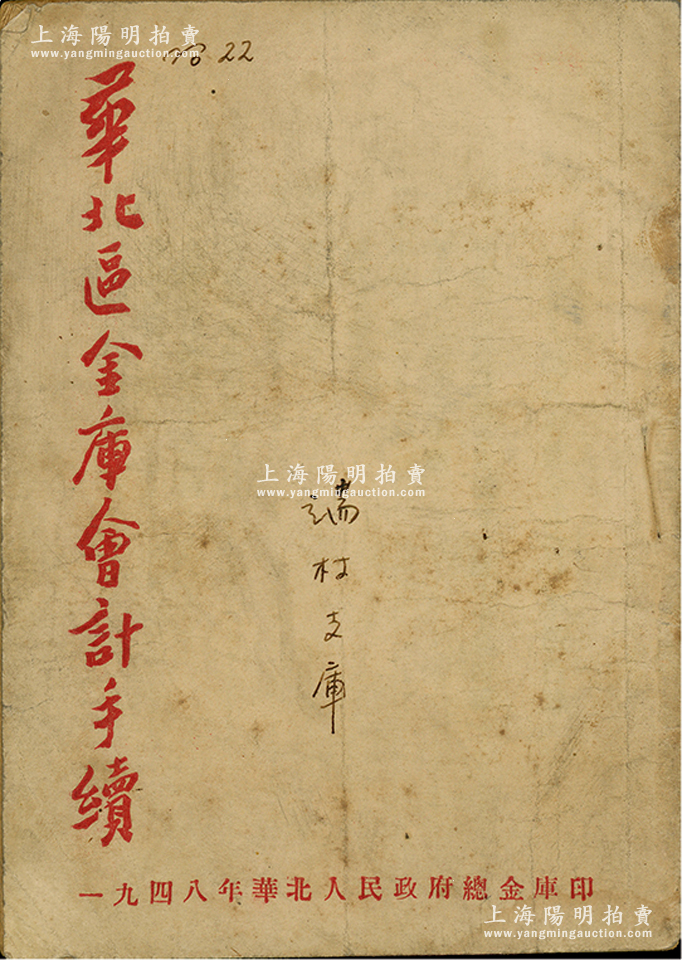 上海陽明拍賣
www.yangmingauction.com
22
華北區金庫會計手續
上海陽明拍賣
www.yangmingauction.com
端村支庫
一九四八年華北人民政府總金庫印
上海陽明拍賣
www.yangmingauction.com